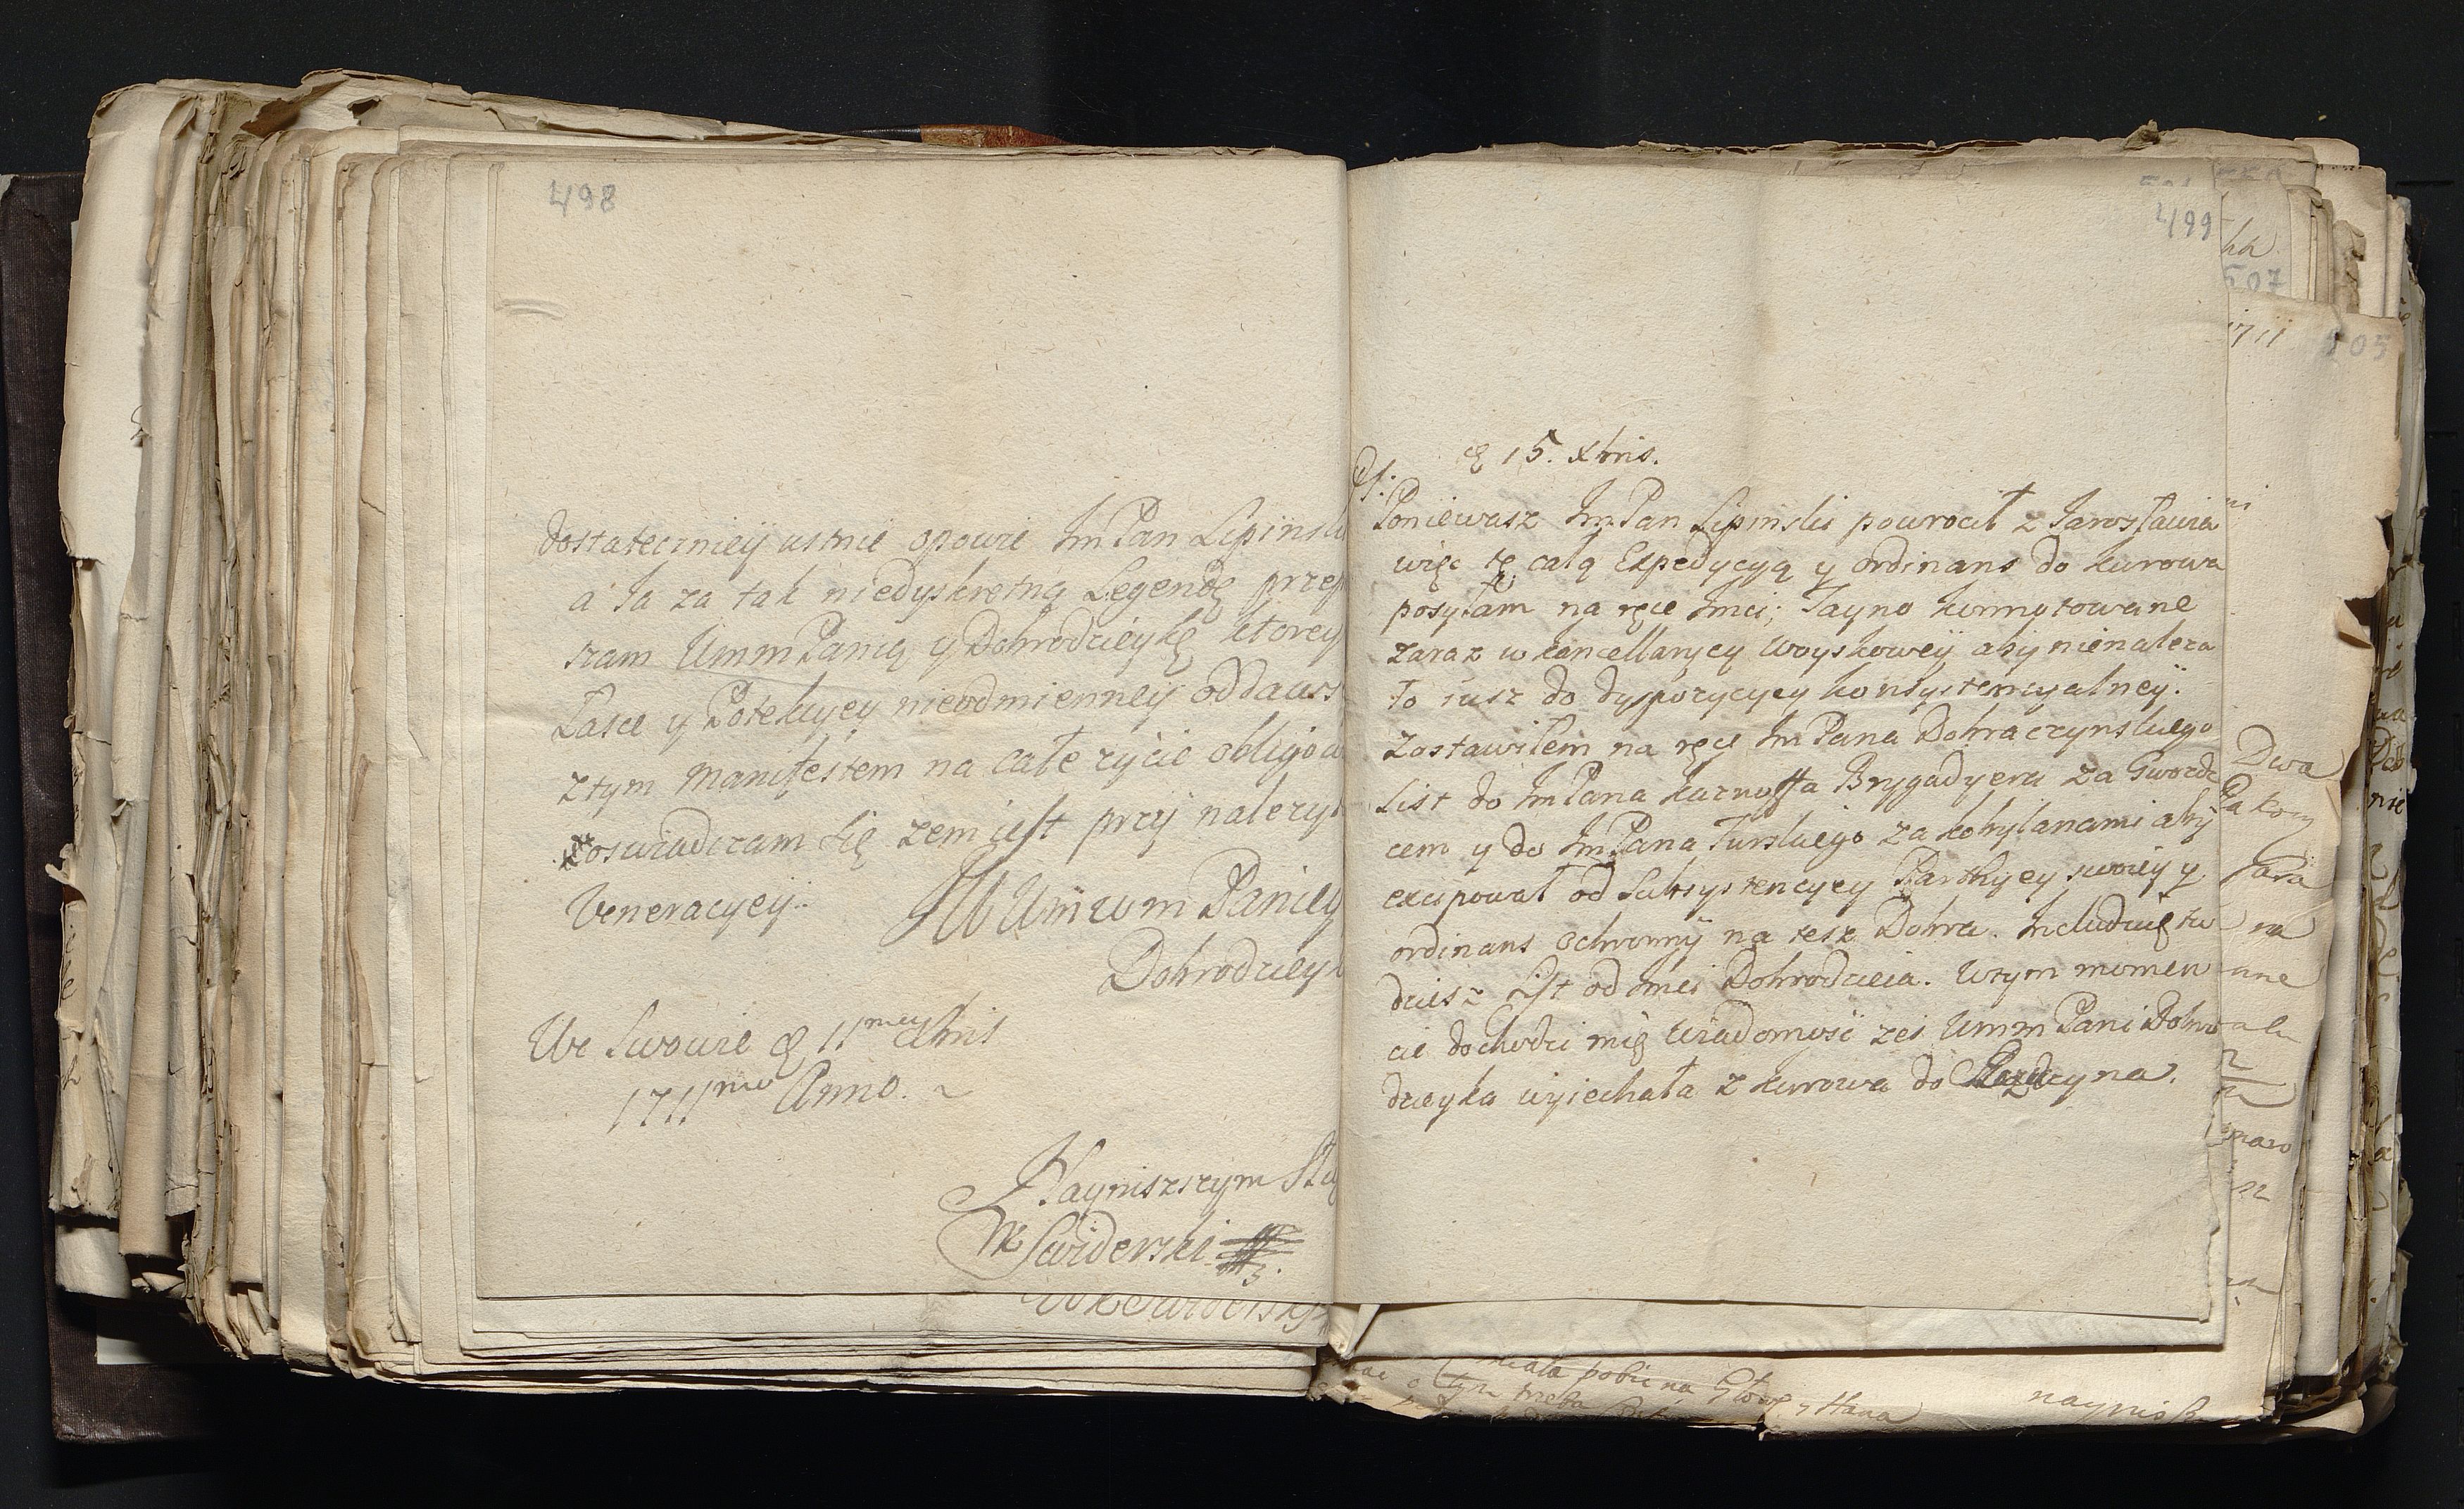 498
dostateczniey ustnie opowie Jm Pan Lipinski
a Ja za tak niedyskretną Legendę przep
szam UmmPanią y Dobrodzieykę ktorey
Łasce y Protekcyey nieodmienney oddawsz
z tym manifestem na całe zycie obligow
oswiadczam się zem iest przy nalezyt
Veneracyey.
JW Umwm Paniey
Dobrodzieyk
We Lwowie d 11 Xbris
1711mo Anno.
Nayniszszym Słu
MSwiderski
499
d 15. Xbris.
Ps:
Poniewasz Jm Pan Lipinski powrocił z Jarosławia
więc tę całą Expedycyą y ordinans do Kurowa
posyłam na ręce Jmci; Tayno konnotowane
zaraz w Kancellaryey Woyskowey aby nienaleza
to iusz do dyspozycyey konsystencyalney.
Zostawiłem na ręce Jm Pana Dobraczynskiego
List do Jm Pana Brygadyera za Gwozdz
cem y do Jm Pana Turskiego za Kobylanami aby
excypował od Subsystencyey Parthyey swoiey y
ordinans ochronny na tesz Dobra. Includuię tu
dziesz List od Jmci Dobrodzieia. W tym momen
cie dochodzi mię wiadomosc zes Umm Pani Dobro
dzieyka wyiechała z Kurowa do
507
1711
505
Dwa
Para
na
miała pobic na Głowę y Hana